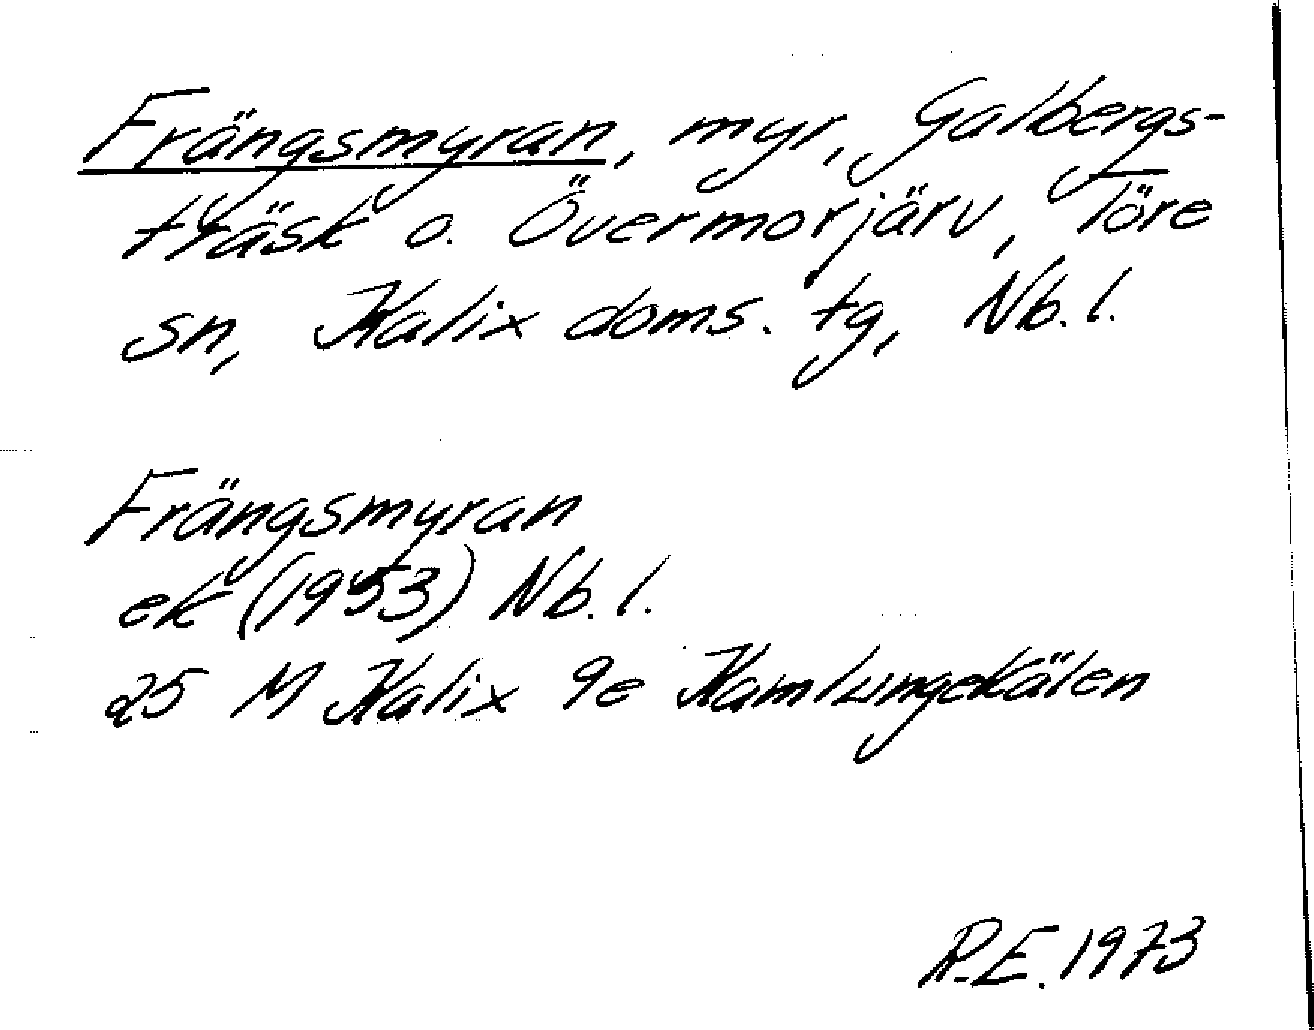 Frängsmyran, myr, Galbergs-
träsk o. Övermorjärv, Töre
sn, Kalix doms. tg, Nb. l.
Frängsmyran
ek (1953) Nb. l.
25 M Kalix 9e Kamlungekälen
R.E. 1973